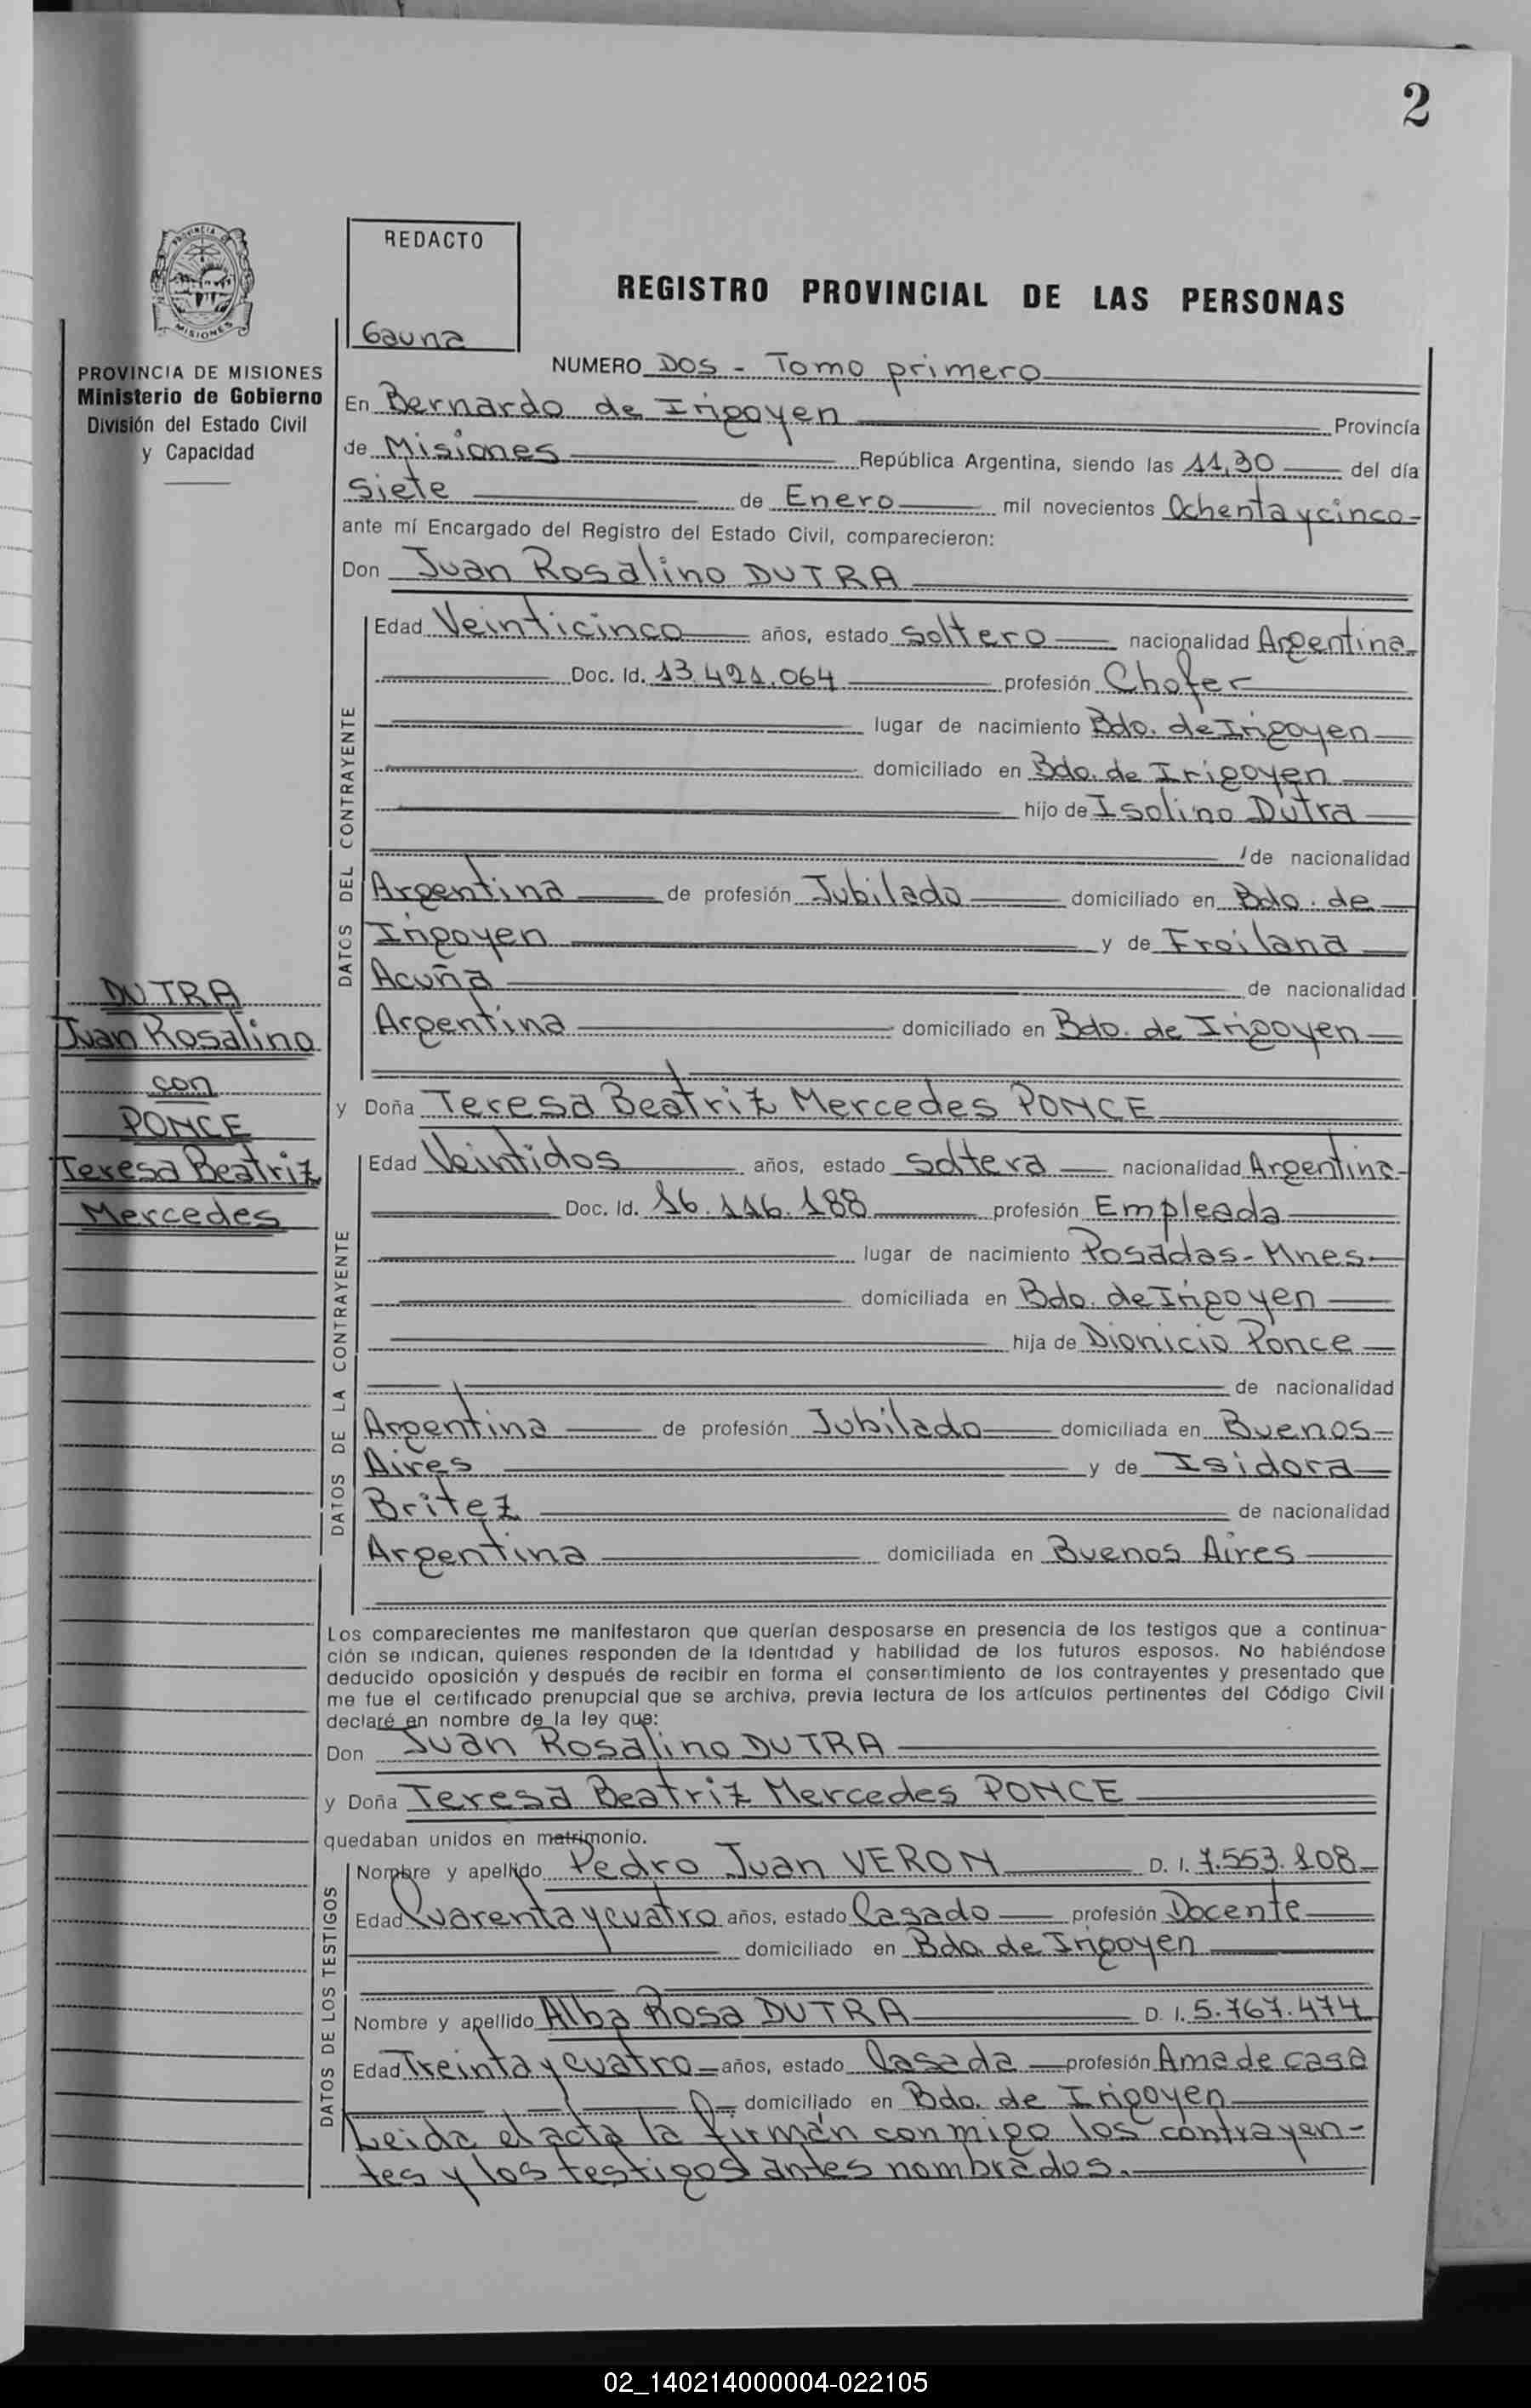 2
REDACTO
Gauna
REGISTRO PROVINCIAL DE LAS PERSONAS
PROVINCIA DE MISIONES
Ministerio de Gobierno
División del Estado Civil
y Capacidad
NUMERO Dos - Tomo primero
En Bernardo de Irigoyen Provincia
de Misiones República Argentina, siendo las 11,30 del día
Siete de Enero mil novecientos Ochenta y cinco
ante mí Encargado del Registro del Estado Civil, comparecieron:
Don Juan Rosalino DUTRA
DATOS DEL CONTRAYENTE
Edad Veinticinco años, estado Soltero nacionalidad Argentina
Doc. Id. 13.421.064 profesión Chofer
lugar de nacimiento Bdo. de Irigoyen
domiciliado en Bdo. de Irigoyen
hijo de Isolino Dutra
de nacionalidad
Argentina de profesión Jubilado domiciliado en Bdo. de
Irigoyen y de Froilana
Acuña de nacionalidad
Argentina domiciliado en Bdo. de Irigoyen
DUTRA
Juan Rosalino
con
PONCE
Teresa Beatriz
Mercedes
y Doña Teresa Beatriz Mercedes PONCE
DATOS DE LA CONTRAYENTE
Edad Veintidos años, estado Soltera nacionalidad Argentina
Doc. Id. 16.116.188 profesión Empleada
lugar de nacimiento Posadas - Mnes.
domiciliada en Bdo. de Irigoyen
hija de Dionicio Ponce
de nacionalidad
Argentina de profesión Jubilado domiciliada en Buenos
Aires y de Isidora
Britez de nacionalidad
Argentina domiciliada en Buenos Aires
Los comparecientes me manifestaron que querían desposarse en presencia de los testigos que a continua-
ción se indican, quienes responden de la identidad y habilidad de los futuros esposos. No habiéndose
deducido oposición y después de recibir en forma el consentimiento de los contrayentes y presentado que
me fue el certificado prenupcial que se archiva, previa lectura de los artículos pertinentes del Código Civil
declaré en nombre de la ley que:
Don Juan Rosalino DUTRA
y Doña Teresa Beatriz Mercedes PONCE
quedaban unidos en matrimonio.
DATOS DE LOS TESTIGOS
Nombre y apellido Pedro Juan VERON D. I. 7.553.108
Edad Cuarenta y cuatro años, estado Casado profesión Docente
domiciliado en Bdo. de Irigoyen
Nombre y apellido Alba Rosa DUTRA D. I. 5.767.474
Edad Treinta y cuatro años, estado Casada profesión Ama de casa
domiciliado en Bdo. de Irigoyen
Leida el acta la firman conmigo los contrayen-
tes y los testigos antes nombrados.
02_140214000004-022105